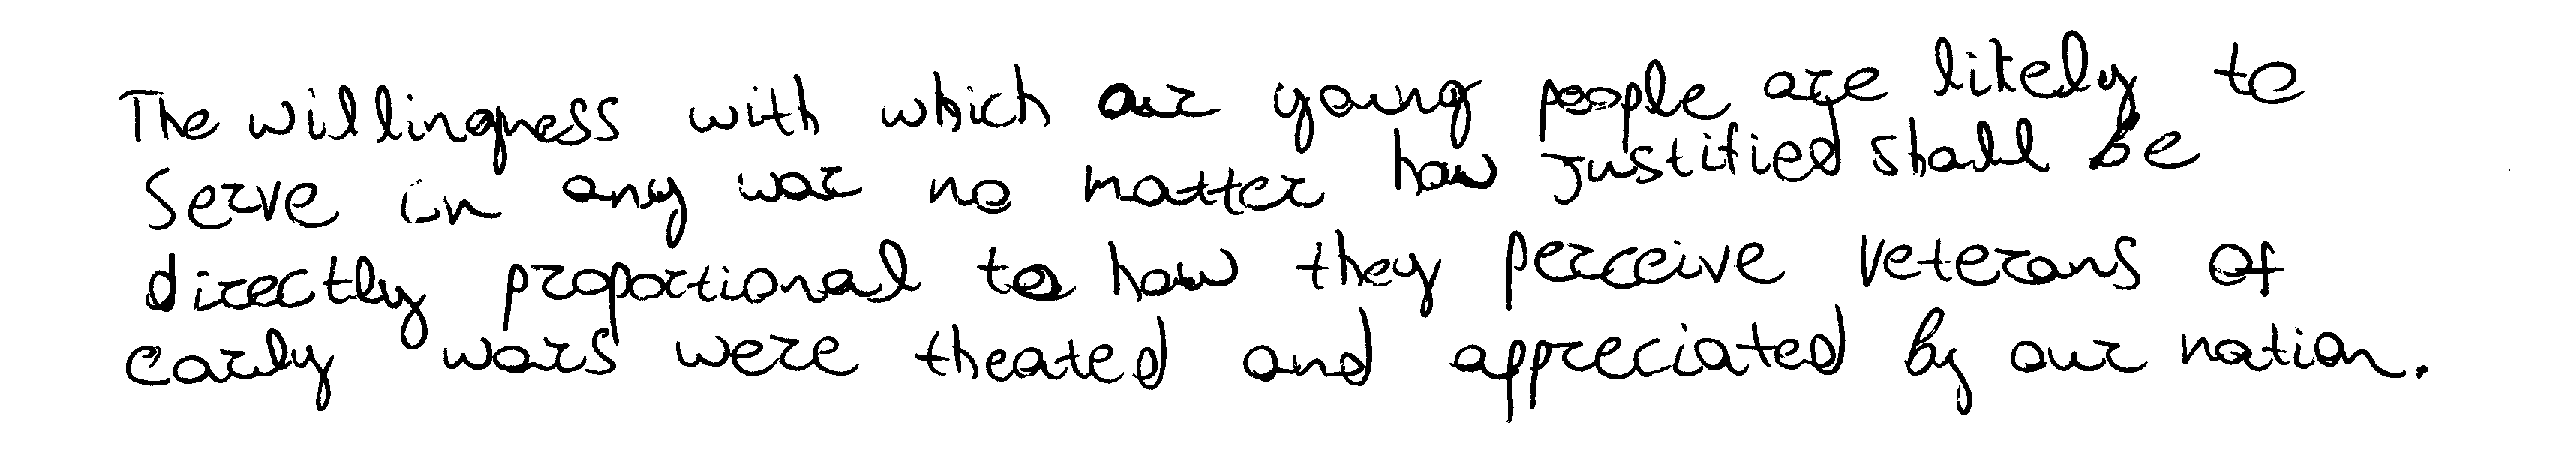 The willingness with which our young people are likely to
Serve in any war no matter how justified shall be
directly proportional to how they perceive veterans of
early wars were theated and appreciated by our nation.